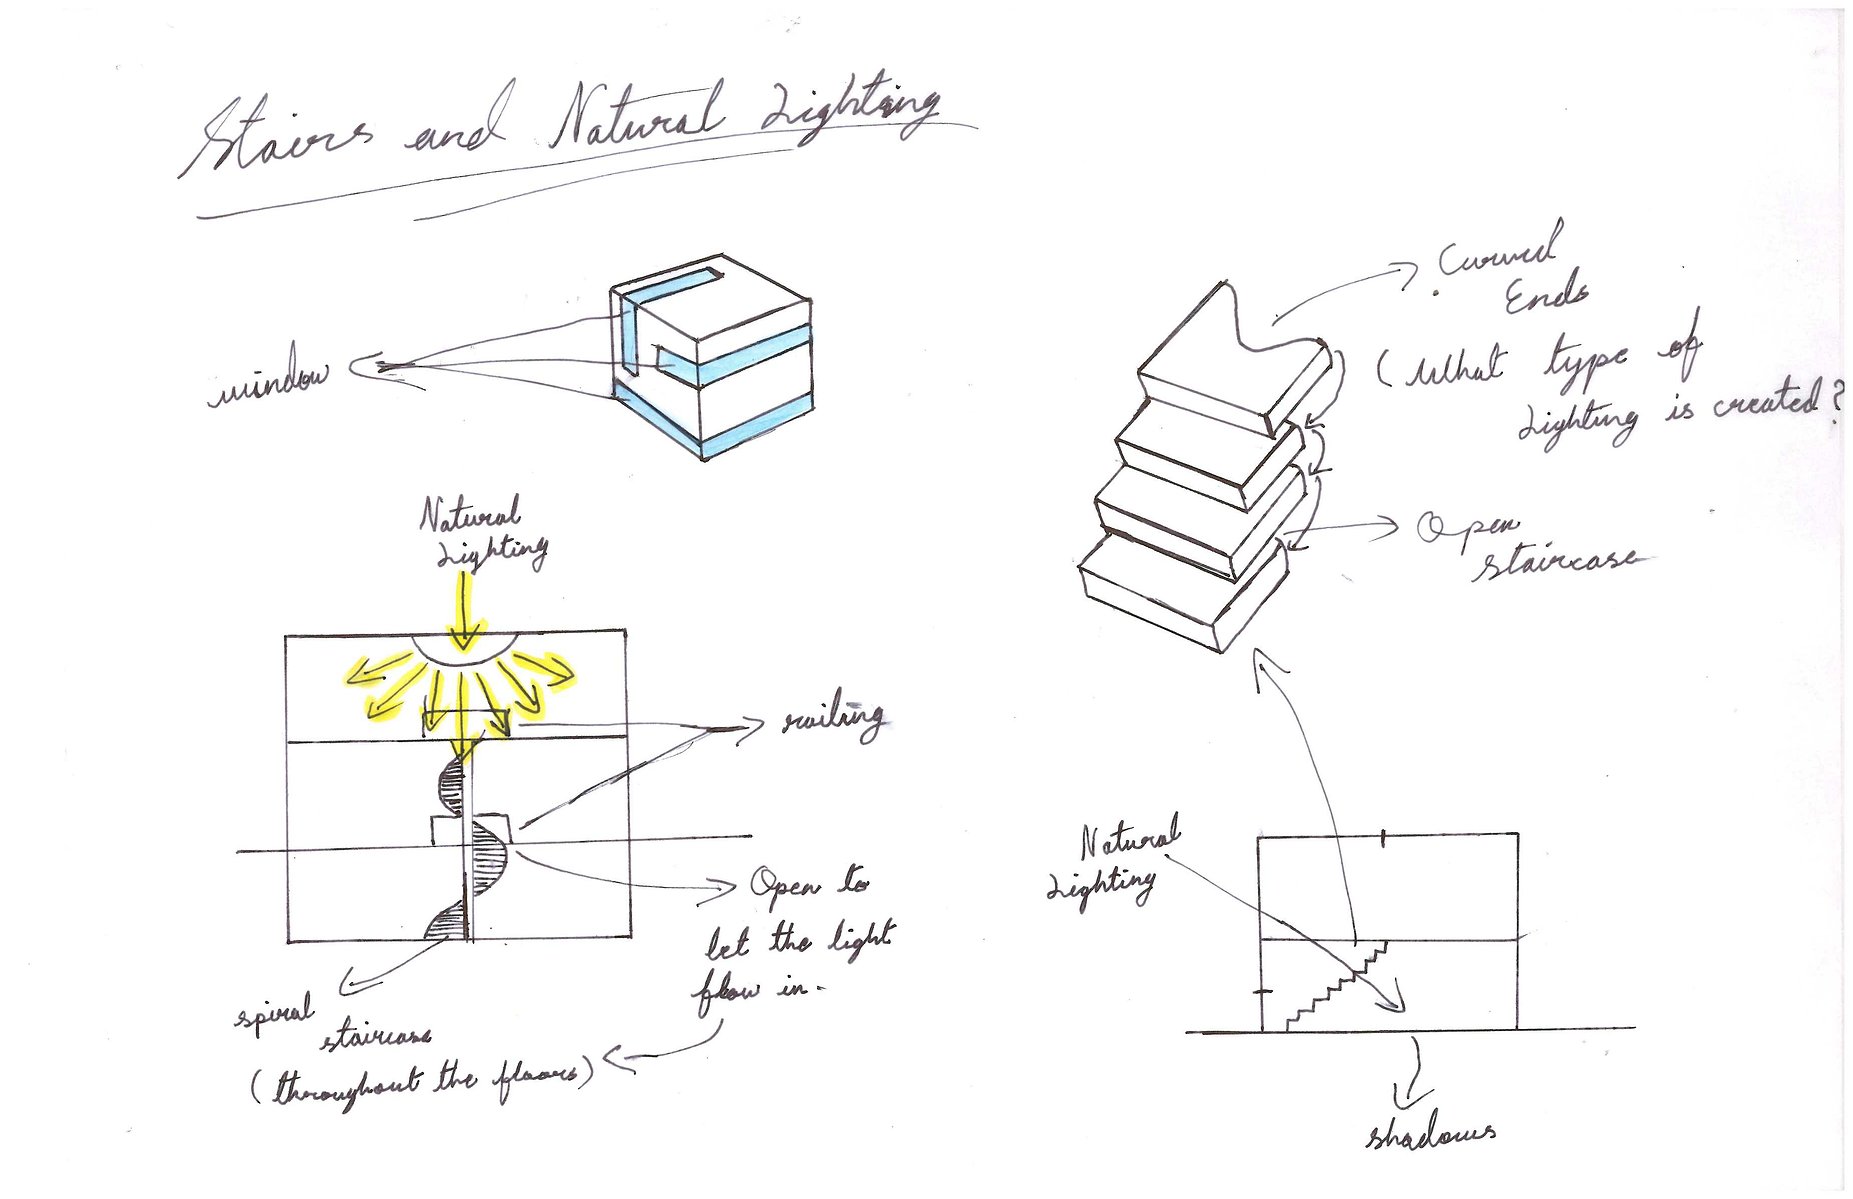 Stairs and Natural Lighting
window
Natural
Lighting
railing
Open to
let the light
flow in.
spiral
staircase
(throughout the floors)
Curved
Ends
(What type of
Lighting is created?
Open
staircase
Natural
Lighting
shadows